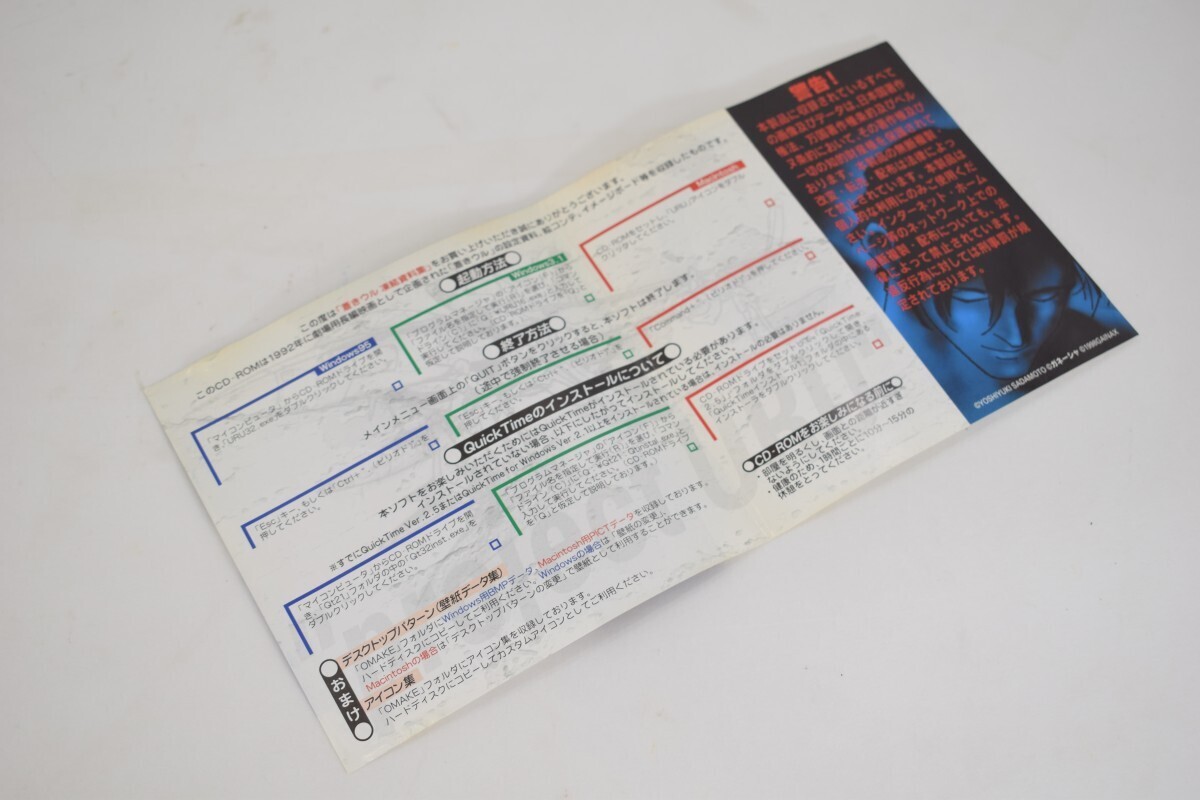 この度は「蒼きウル 凍結資料集」をお買い上げいただき誠にありがとうございます。
このCD-ROMは1992年に劇場用長編映画として企画された「蒼きウル」の設定資料、絵コンテ、イメージボード等を収録したものです。
起動方法
Windows95
「マイコンピュータ」からCD-ROMドライブを開
き、「URU32.exe」をダブルクリックしてください。
Windows3.1
「プログラムマネージャ」の「アイコン(F)」から
「ファイル名を指定して実行(R)」を選び、「コマン
ドライン(C)」に「Q:¥URU16.exe」と入力して
実行してください。（CD-ROMドライブを「Q」と
仮定して説明しております。）
Macintosh
CD-ROMをセットし、「URU」アイコンをダブル
クリックしてください。
終了方法
メインメニュー画面上の「QUIT」ボタンをクリックすると、本ソフトは終了します。
（途中で強制終了させる場合）
「Esc」キー、もしくは「Ctrl＋．（ピリオド）」を
押してください。
「Esc」キー、もしくは「Ctrl＋．（ピリオド）」を
押してください。
「Command＋．（ピリオド）」を押してください。
QuickTimeのインストールについて
本ソフトをお楽しみいただくためにはQuickTimeがインストールされている必要があります。
インストールされていない場合、以下にしたがってインストールしてください。
※すでにQuickTime Ver.2.5またはQuickTime for Windows Ver.2.1以上をインストールされている場合は、インストールの必要はありません。
「マイコンピュータ」からCD-ROMドライブを開
き、「Qt21」フォルダの中の「Qt32inst.exe」を
ダブルクリックしてください。
「プログラムマネージャ」の「アイコン(F)」から
「ファイル名を指定して実行(R)」を選び、「コマン
ドライン(C)」に「Q:¥Qt21¥Qtinstal.exe」と
入力して実行してください。（CD-ROMドライブ
を「Q」と仮定して説明しております。）
CD-ROMドライブをセットし、「QuickTime
2.5」フォルダをダブルクリックして開き
「QuickTimeインストーラ」
をダブルクリックしてください。
CD-ROMをお楽しみになる前に
・部屋を明るくし、画面との距離が近すぎ
ないようにしてください。
・健康のため、1時間ごとに10分〜15分の
休憩をとってください。
おまけ
デスクトップパターン（壁紙データ集）
「OMAKE」フォルダにWindows用BMPデータ、Macintosh用PICTデータを収録しております。
ハードディスクにコピーしてご利用ください。Windowsの場合は「壁紙の変更」、
Macintoshの場合は「デスクトップパターンの変更」で壁紙として利用することができます。
アイコン集
「OMAKE」フォルダにアイコン集を収録しております。
ハードディスクにコピーしてカスタムアイコンとしてご利用ください。
警告！
本製品に収録されているすべて
の画像及びデータは、日本国著作
権法、万国著作権条約及びベル
ヌ条約において、その著作権及び
一切の知的財産権を保護されて
おります。本製品の無断複製・
改変・転売・配布は法律によっ
て禁止されています。本製品は
個人的な利用にのみご使用くだ
さい。インターネット・ホーム
ページ等のネットワーク上での
無断複製・配布についても、法
律によって禁止されています。
違反行為に対しては刑事罰が規
定されております。
©YOSHIYUKI SADAMOTO ©ガネーシャ ©1998GAINAX